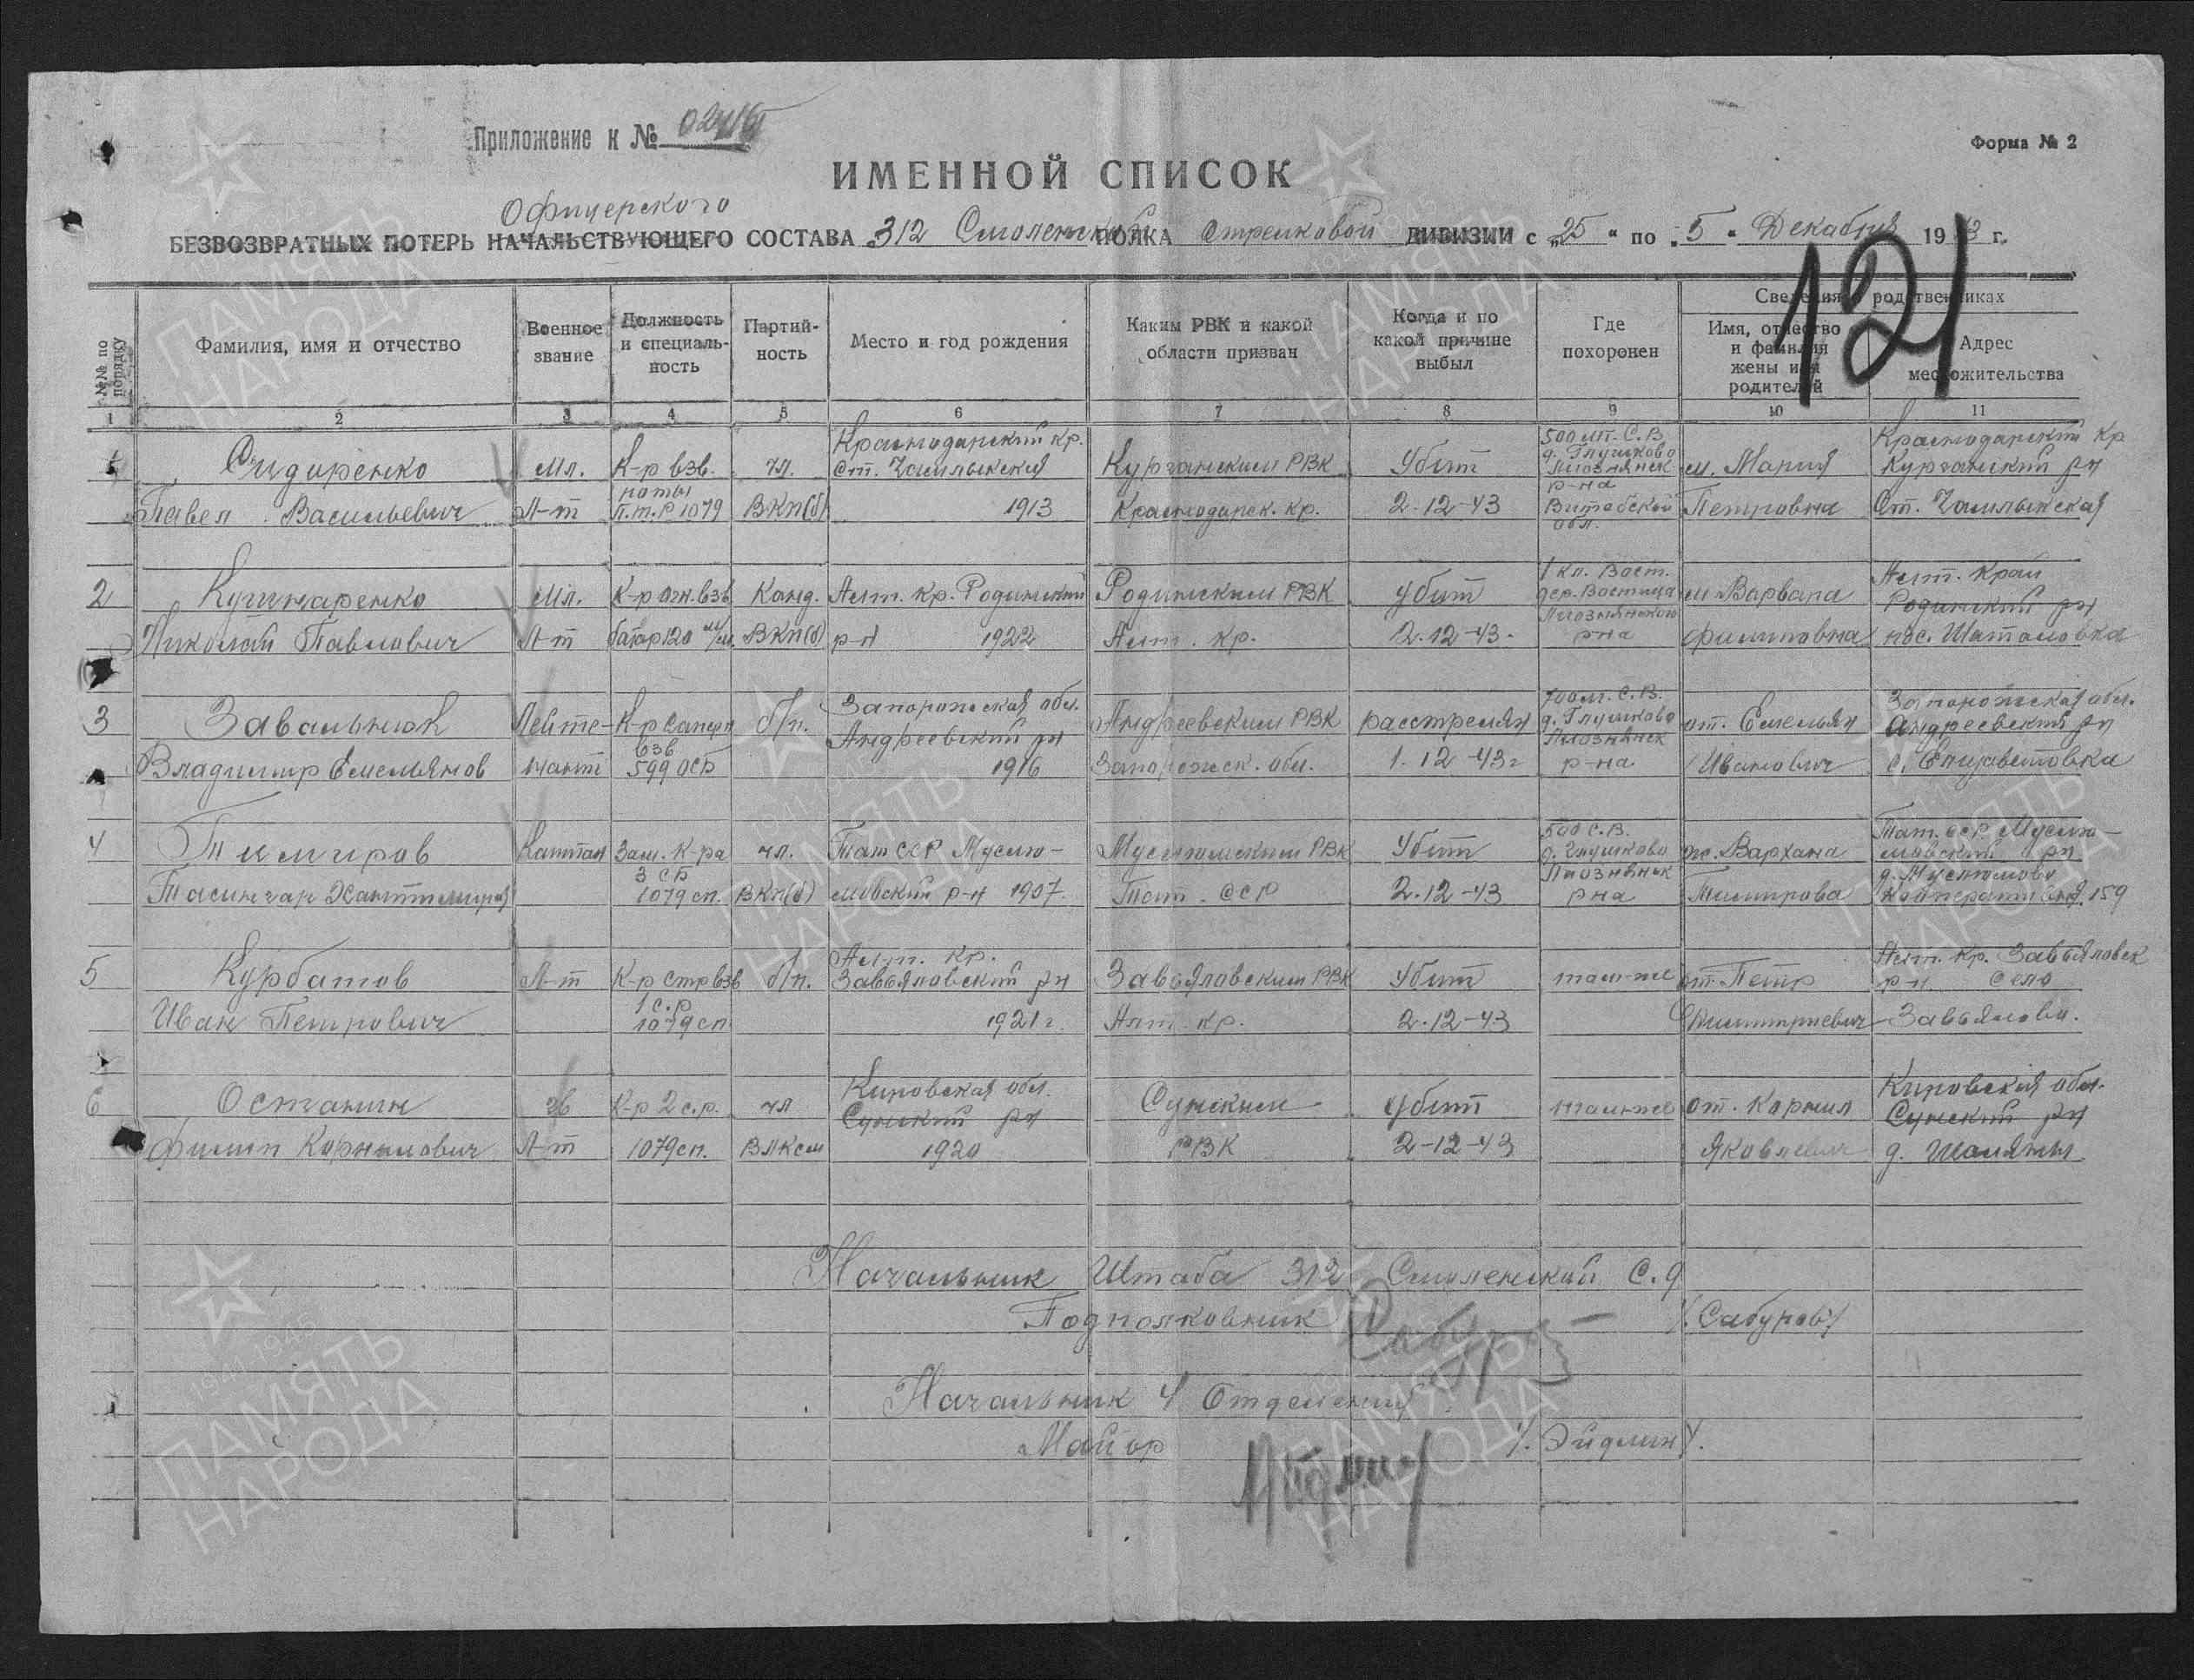 Приложение к №
Форма № 2
ИМЕННОЙ СПИСОК
Офицерского
БЕЗВОЗВРАТНЫХ ПОТЕРЬ НАЧАЛЬСТВУЮЩЕГО СОСТАВА 312 Смоленской ПОЛКА Стрелковой ДИВИЗИИ с „25“ по „5“ Декабря 1943 г.
121
№№ по порядку
Фамилия, имя и отчество
Военное звание
Должность и специальность
Партийность
Место и год рождения
Каким РВК и какой области призван
Когда и по какой причине выбыл
Где похоронен
Сведения о родственниках
Имя, отчество и фамилия жены или родителей
Адрес местожительства
1 2 3 4 5 6 7 8 9 10 11
1 Сидоренко Павел Васильевич
Мл. Л-т
К-р взв. роты П.т.Р 1079
чл. ВКП(б)
Краснодарский кр. Ст. 1913
Курганским РВК Краснодарск. кр.
Убит 2-12-43
500 мт. С.В. д. Глушково Лиознянск р-на Витебской обл.
м. Мария Петровна
Краснодарский кр Курганский р-н Ст.
2 Кушнаренко Николай Павлович
Мл. Л-т
К-р огн. взв батар 120 м/м.
Канд. ВКП(б)
Алт. кр. Родинский р-н 1922
Родинским РВК Алт. кр.
убит 2.12-43.
1 кл. Вост. дер. Лиознянского р-на
м Варвара Филипповна
Алт. край Родинский р-н пос. Шаталовка
3 Завальнюк Владимир Емельянов
Лейтенант
К-р сапер взв 599 ОСБ
б/п.
Запорожская обл. Андреевский р-н 1916
Андреевским РВК Запорожск. обл.
расстрелян 1-12-43г
700 мт. С.В. д. Глушково Лиознянск р-на
от. Емельян Иванович
Запорожская обл. Андреевский р-н с. Елизаветовка
4 Тимиров
Капитан
Зам. К-ра 3 СБ 1079 сп.
чл. ВКП(б)
Тат ССР Муслюмовский р-н 1907
Муслюмским РВК Тат. ССР
Убит 2-12-43
500 С.В. д. Глушково Лиознянск р-на
ж. Тимирова
Тат. ССР Муслюмовский р-н д. Муслюмово 159
5 Курбатов Иван Петрович
Л-т
К-р стр взв 1 с.р 1079 сп
б/п.
Алт. кр. Завьяловский р-н 1921 г.
Завьяловским РВК Алт. кр.
Убит 2-12-43
там-же
от. Петр Дмитриевич
Алт. кр. Завьяловск р-н. село Завьялово.
6 Останин Филип Корнилович
Л-т
К-р 2 с.р. 1079 сп.
чл ВЛКСМ
Кировская обл. Сунский р-н 1920
Сунским РВК
убит 2-12-43
там-же
от. Корнил Яковлевич
Кировская обл. Сунский р-н д.
Начальник Штаба 312 Смоленской С.Д
Подполковник /Сабуров/
Начальник 4 Отделения
Майор /Эйдлин/.
1941 1945
ПАМЯТЬ
НАРОДА